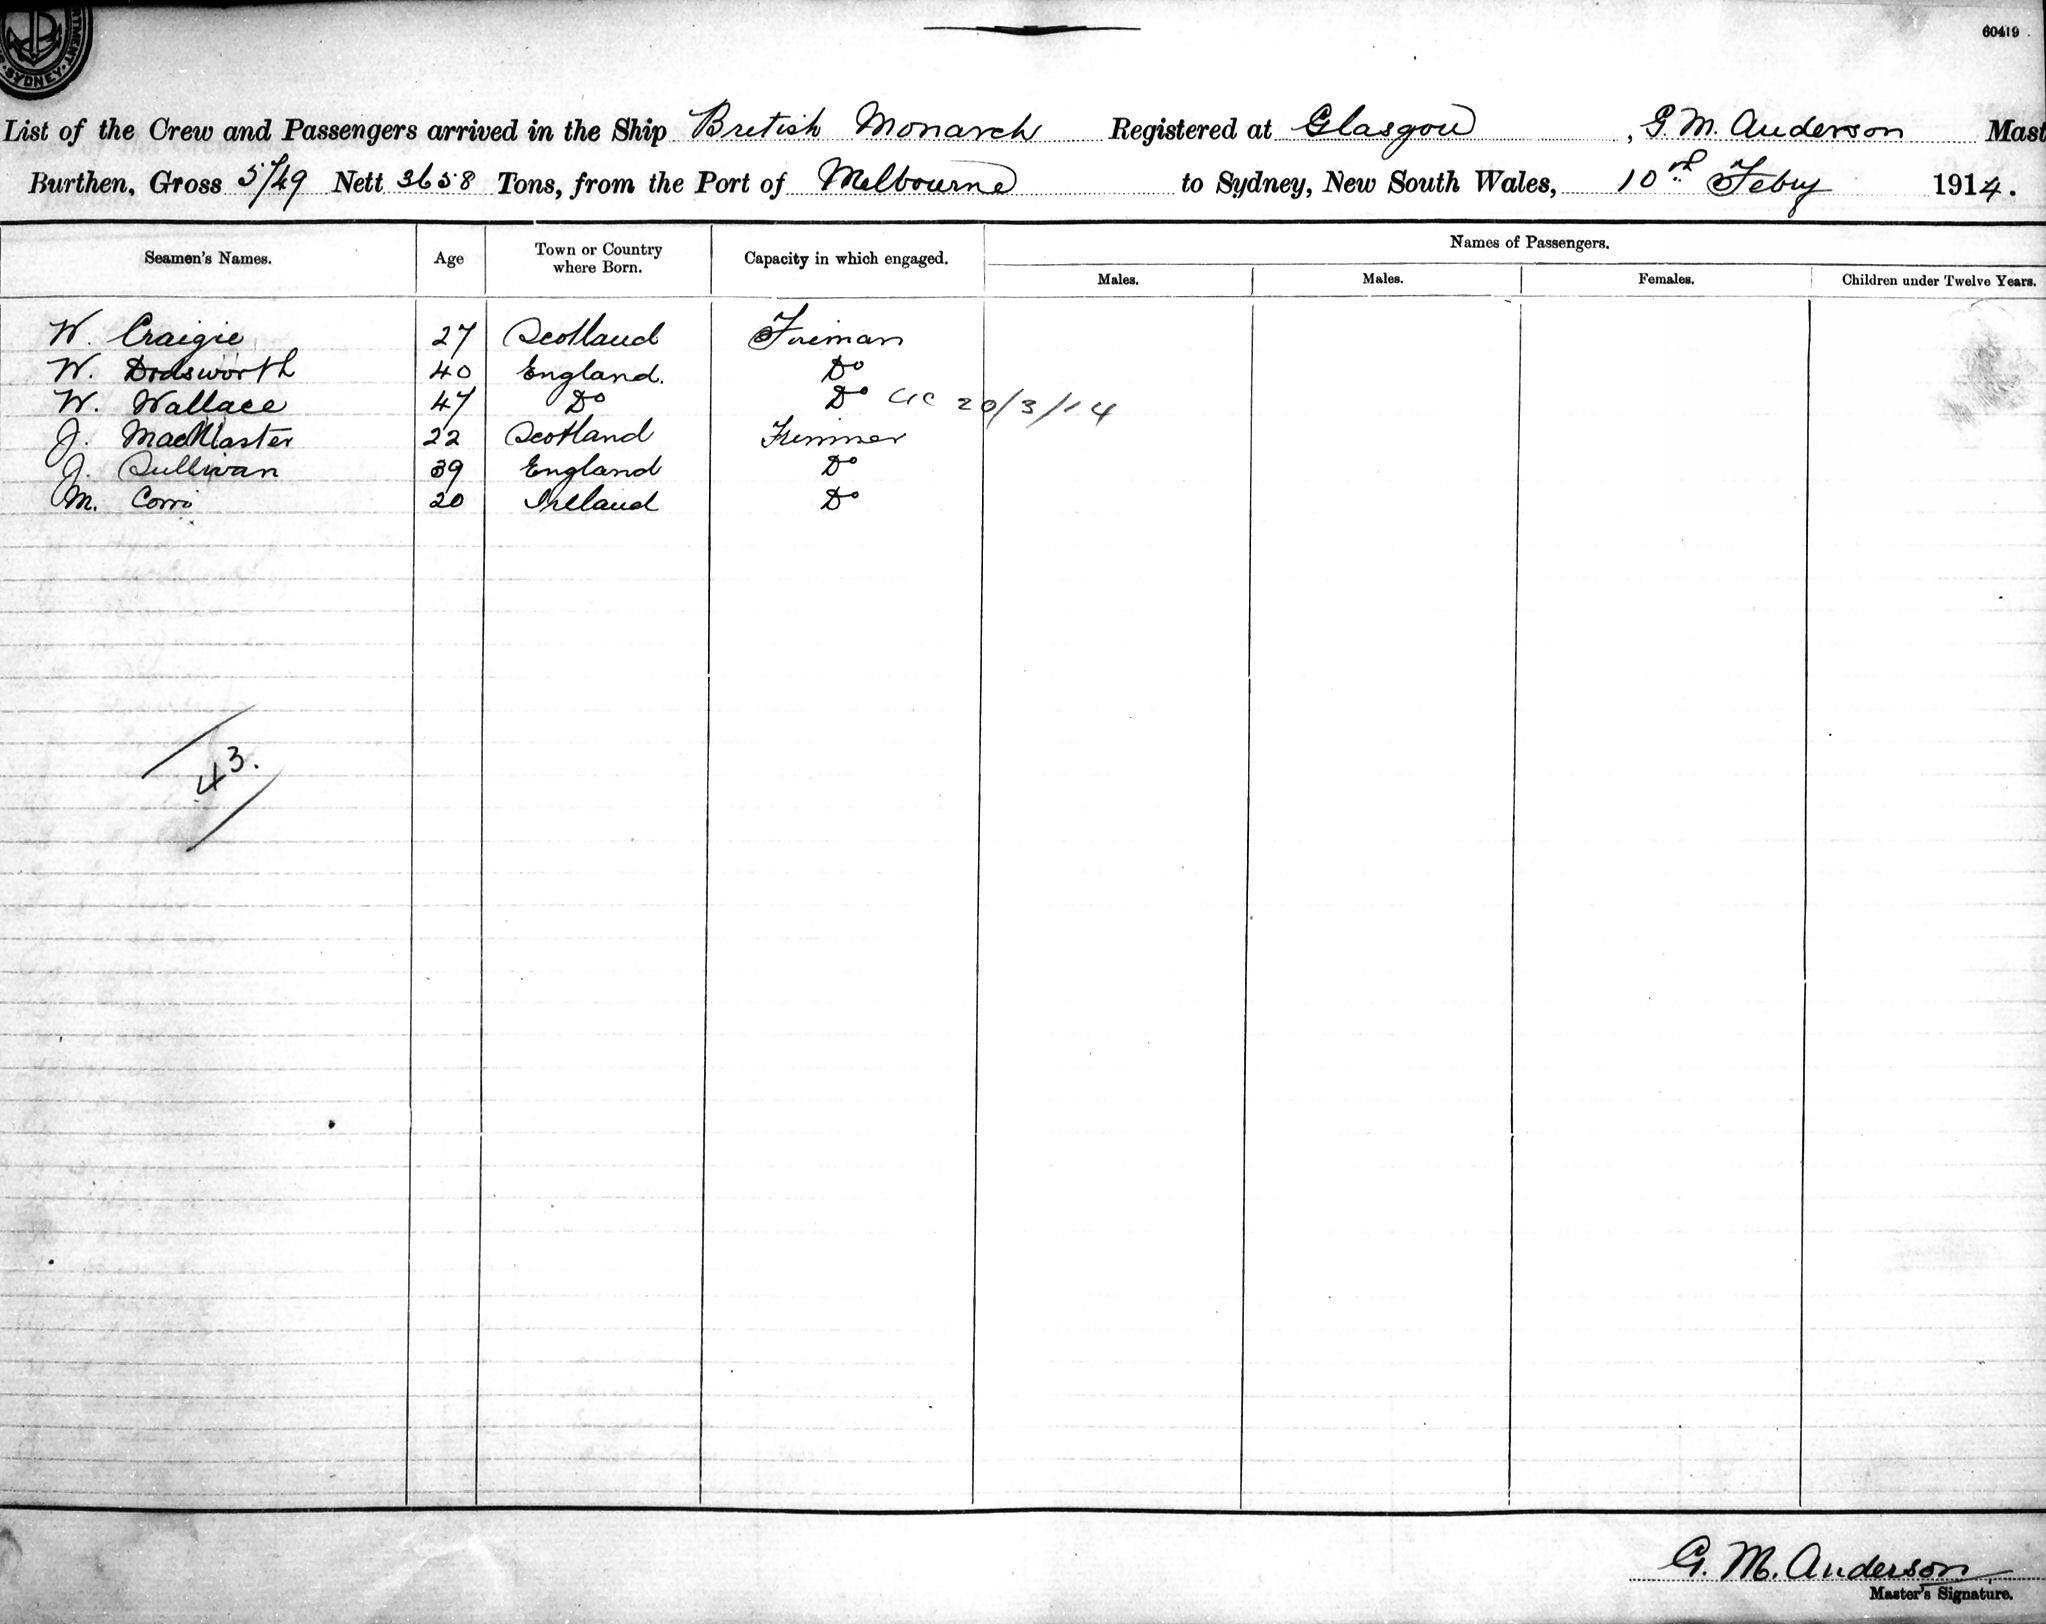 SYDNEY
60419
List of the Crew and Passengers arrived in the Ship British Monarch Registered at Glasgow, G. M. Anderson Mast
Burthen, Gross 5749 Nett 3658 Tons, from the Port of Melbourne to Sydney, New South Wales, 10th Feby 1914.
Seamen's Names. Age Town or Country where Born. Capacity in which engaged. Names of Passengers.
Males. Males. Females. Children under Twelve Years.
W. Craigie 27 Scotland Fireman
W. Dodsworth 40 England. Do
W. Wallace 47 Do Do 20/3/14
J. MacMaster 22 Scotland Trimmer
J. Sullivan 39 England Do
M. Corri 20 Ireland Do
43.
G. M. Anderson
Master's Signature.